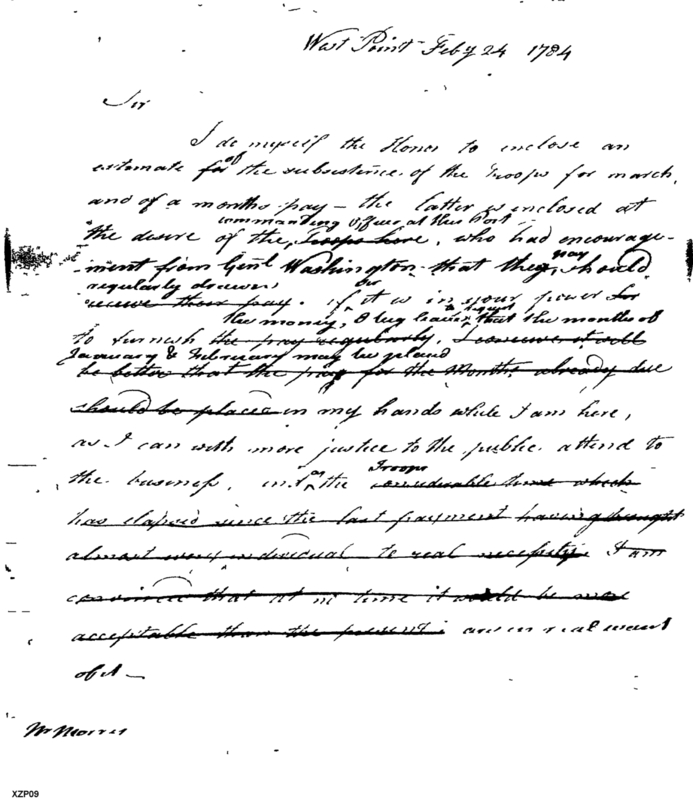 West Point Feby 24 1784
Sir
I do myself the Honor to enclose an
estimate for of the subsistence of the Troops for march,
and of a months pay — the latter is enclosed at
commanding Officer at this Post
the desire of the Troops here, who had encourage-
pay
ment from Genl Washington that they should
regularly drawn
receive their pay. if it is in your power for
the money, I beg leave to request that the months of
to furnish the pay regularly, I conceive it will
January & February may be placed
be better that the pay for the Months already due
should be placed in my hands while I am here,
as I can with more justice to the public attend to
the business, as the Troops considerable time which
has elapsed since the last payment having brought
almost every individual to real necessity I am
convinced that at no time it would be more
acceptable than the present. are in real want
of it —
Mr Morris
XZP09